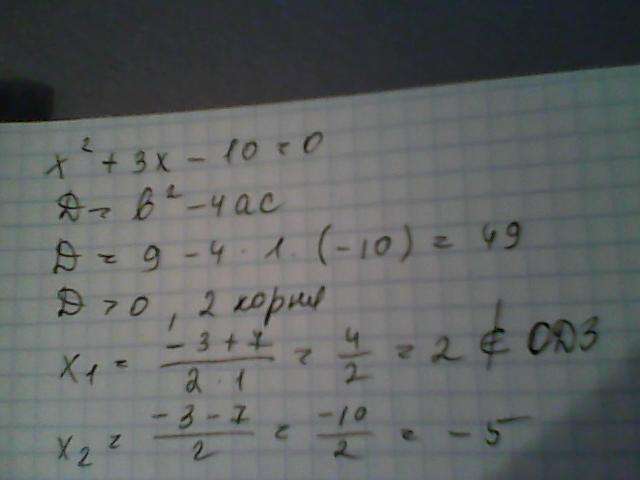 x² + 3x - 10 = 0
D = b² - 4ac
D = 9 - 4 · 1 · (-10) = 49
D > 0, 2 корня
x₁ = (-3+7)/(2·1) = 4/2 = 2 ∉ ОДЗ
x₂ = (-3-7)/2 = -10/2 = -5